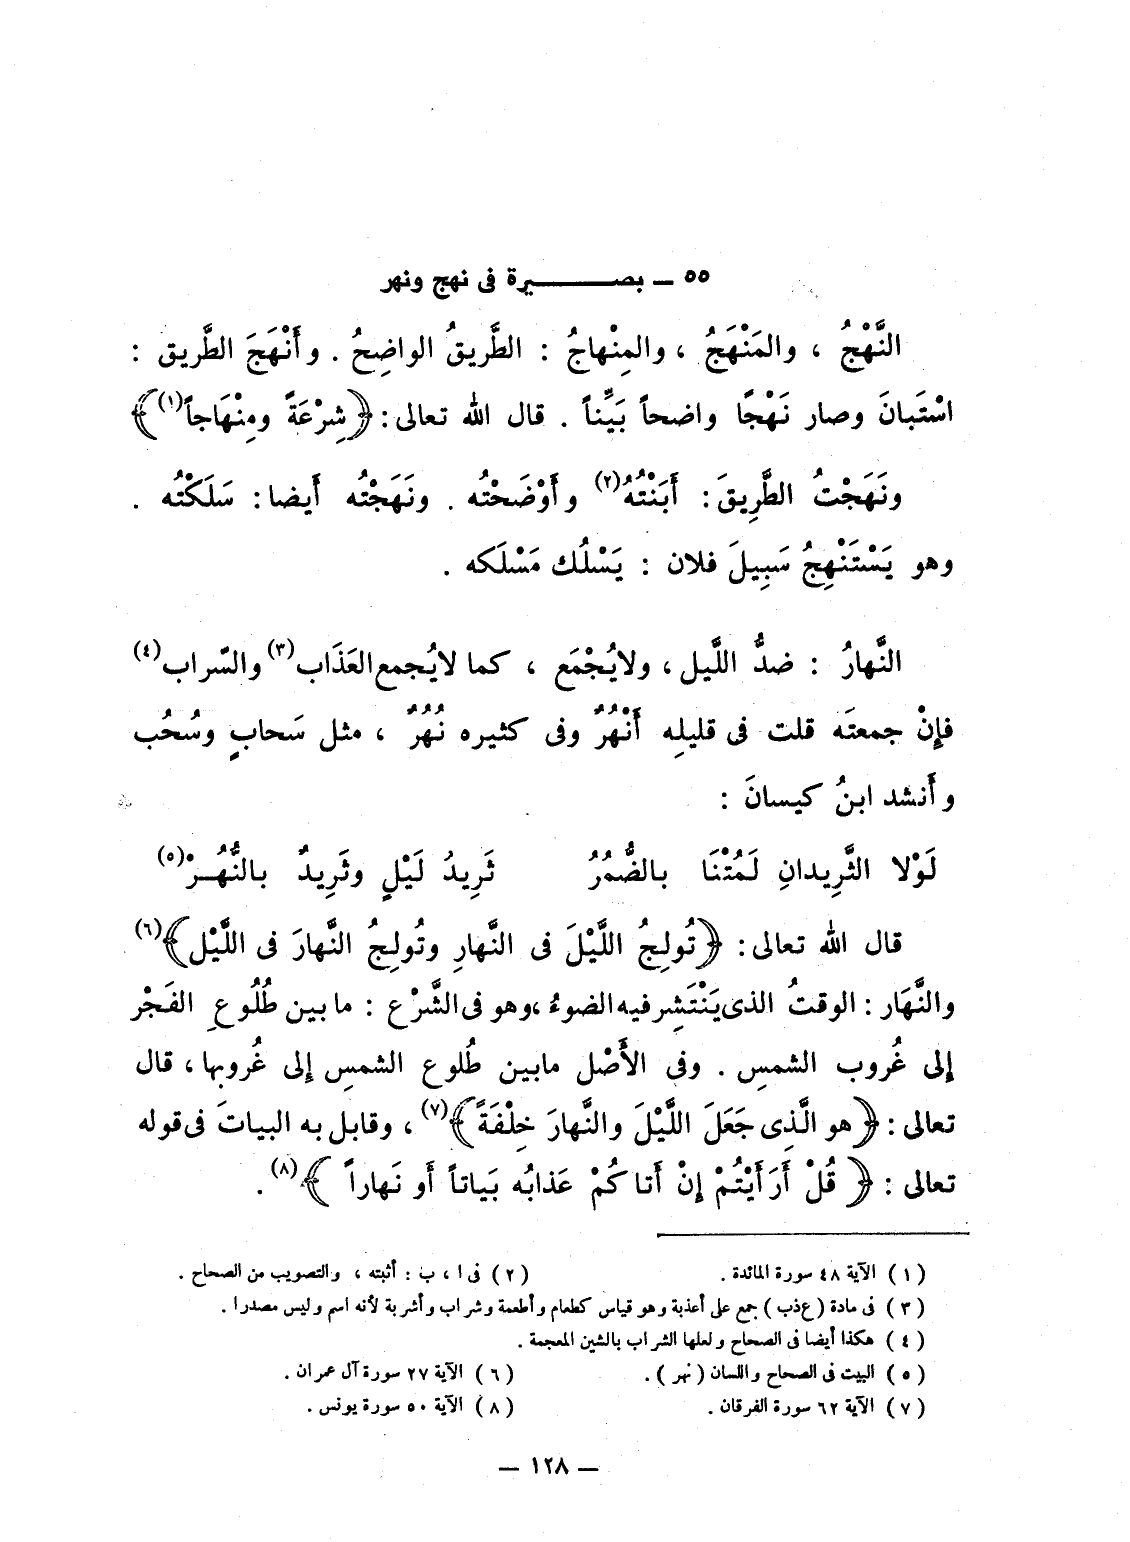 ٥٥ ــ بصـــــــيرة فى نهج ونهر
النَّهْجُ ، والمَنْهَجُ ، والمِنْهاجُ : الطَّريقُ الواضِحُ . وأَنْهَجَ الطَّريق :
اسْتَبانَ وصار نَهْجًا واضحاً بَيِّناً . قال الله تعالى : ﴿شِرْعَةً ومِنْهَاجاً(١)﴾
ونَهَجْتُ الطَّرِيقَ : أَبَنْتُهُ(٢) وأَوْضَحْتُه . ونَهَجْتُه أَيضا : سَلَكْتُه .
وهو يَسْتَنْهِجُ سَبِيلَ فلان : يَسْلُك مَسْلَكه .
النَّهارُ : ضدُّ اللَّيل ، ولا يُجْمَع ، كما لا يُجمع العَذَاب(٣) والسّراب(٤)
فإِنْ جمعتَه قلت فى قليلِه أَنْهُرٌ وفى كثيره نُهُرٌ ، مثل سَحابٍ وسُحُب
وأَنشد ابنُ كيسانَ :
لَوْلا الثَّرِيدانِ لَمُتْنَا بالضُّمُرُ ثَرِيدُ لَيْلٍ وثَرِيدٌ بالنُّهُـرْ(٥)
قال الله تعالى : ﴿تُولِجُ اللَّيْلَ فى النَّهارِ وتُولِجُ النَّهارَ فى اللَّيْل﴾(٦)
والنَّهَار : الوقتُ الذى يَنْتَشِر فيه الضوءُ ، وهو فى الشَّرْع : ما بين طُلُوعِ الفَجْر
إلى غُروب الشمسِ . وفى الأَصْل مابين طُلوع الشمسِ إلى غُروبها ، قال
تعالى : ﴿هو الَّذِى جَعَلَ اللَّيْلَ والنَّهارَ خِلْفَةً﴾(٧) ، وقابل به البيات فى قوله
تعالى : ﴿ قُلْ أَرَأَيْتُمْ إِنْ أَتاكُمْ عَذابُه بَياتاً أَو نَهاراً ﴾(٨) .
(١) الآية ٤٨ سورة المائدة . (٢) فى ا ، ب : أثبته ، والتصويب من الصحاح .
(٣) فى مادة (عذب) جمع على أعذبة وهو قياس كطعام وأطعمة وشراب وأشربة لأنه اسم وليس مصدرا .
(٤) هكذا أيضا فى الصحاح ولعلها الشراب بالشين المعجمة .
(٥) البيت فى الصحاح واللسان (نهر) . (٦) الآية ٢٧ سورة آل عمران .
(٧) الآية ٦٢ سورة الفرقان . (٨) الآية ٥٠ سورة يونس .
— ١٢٨ —